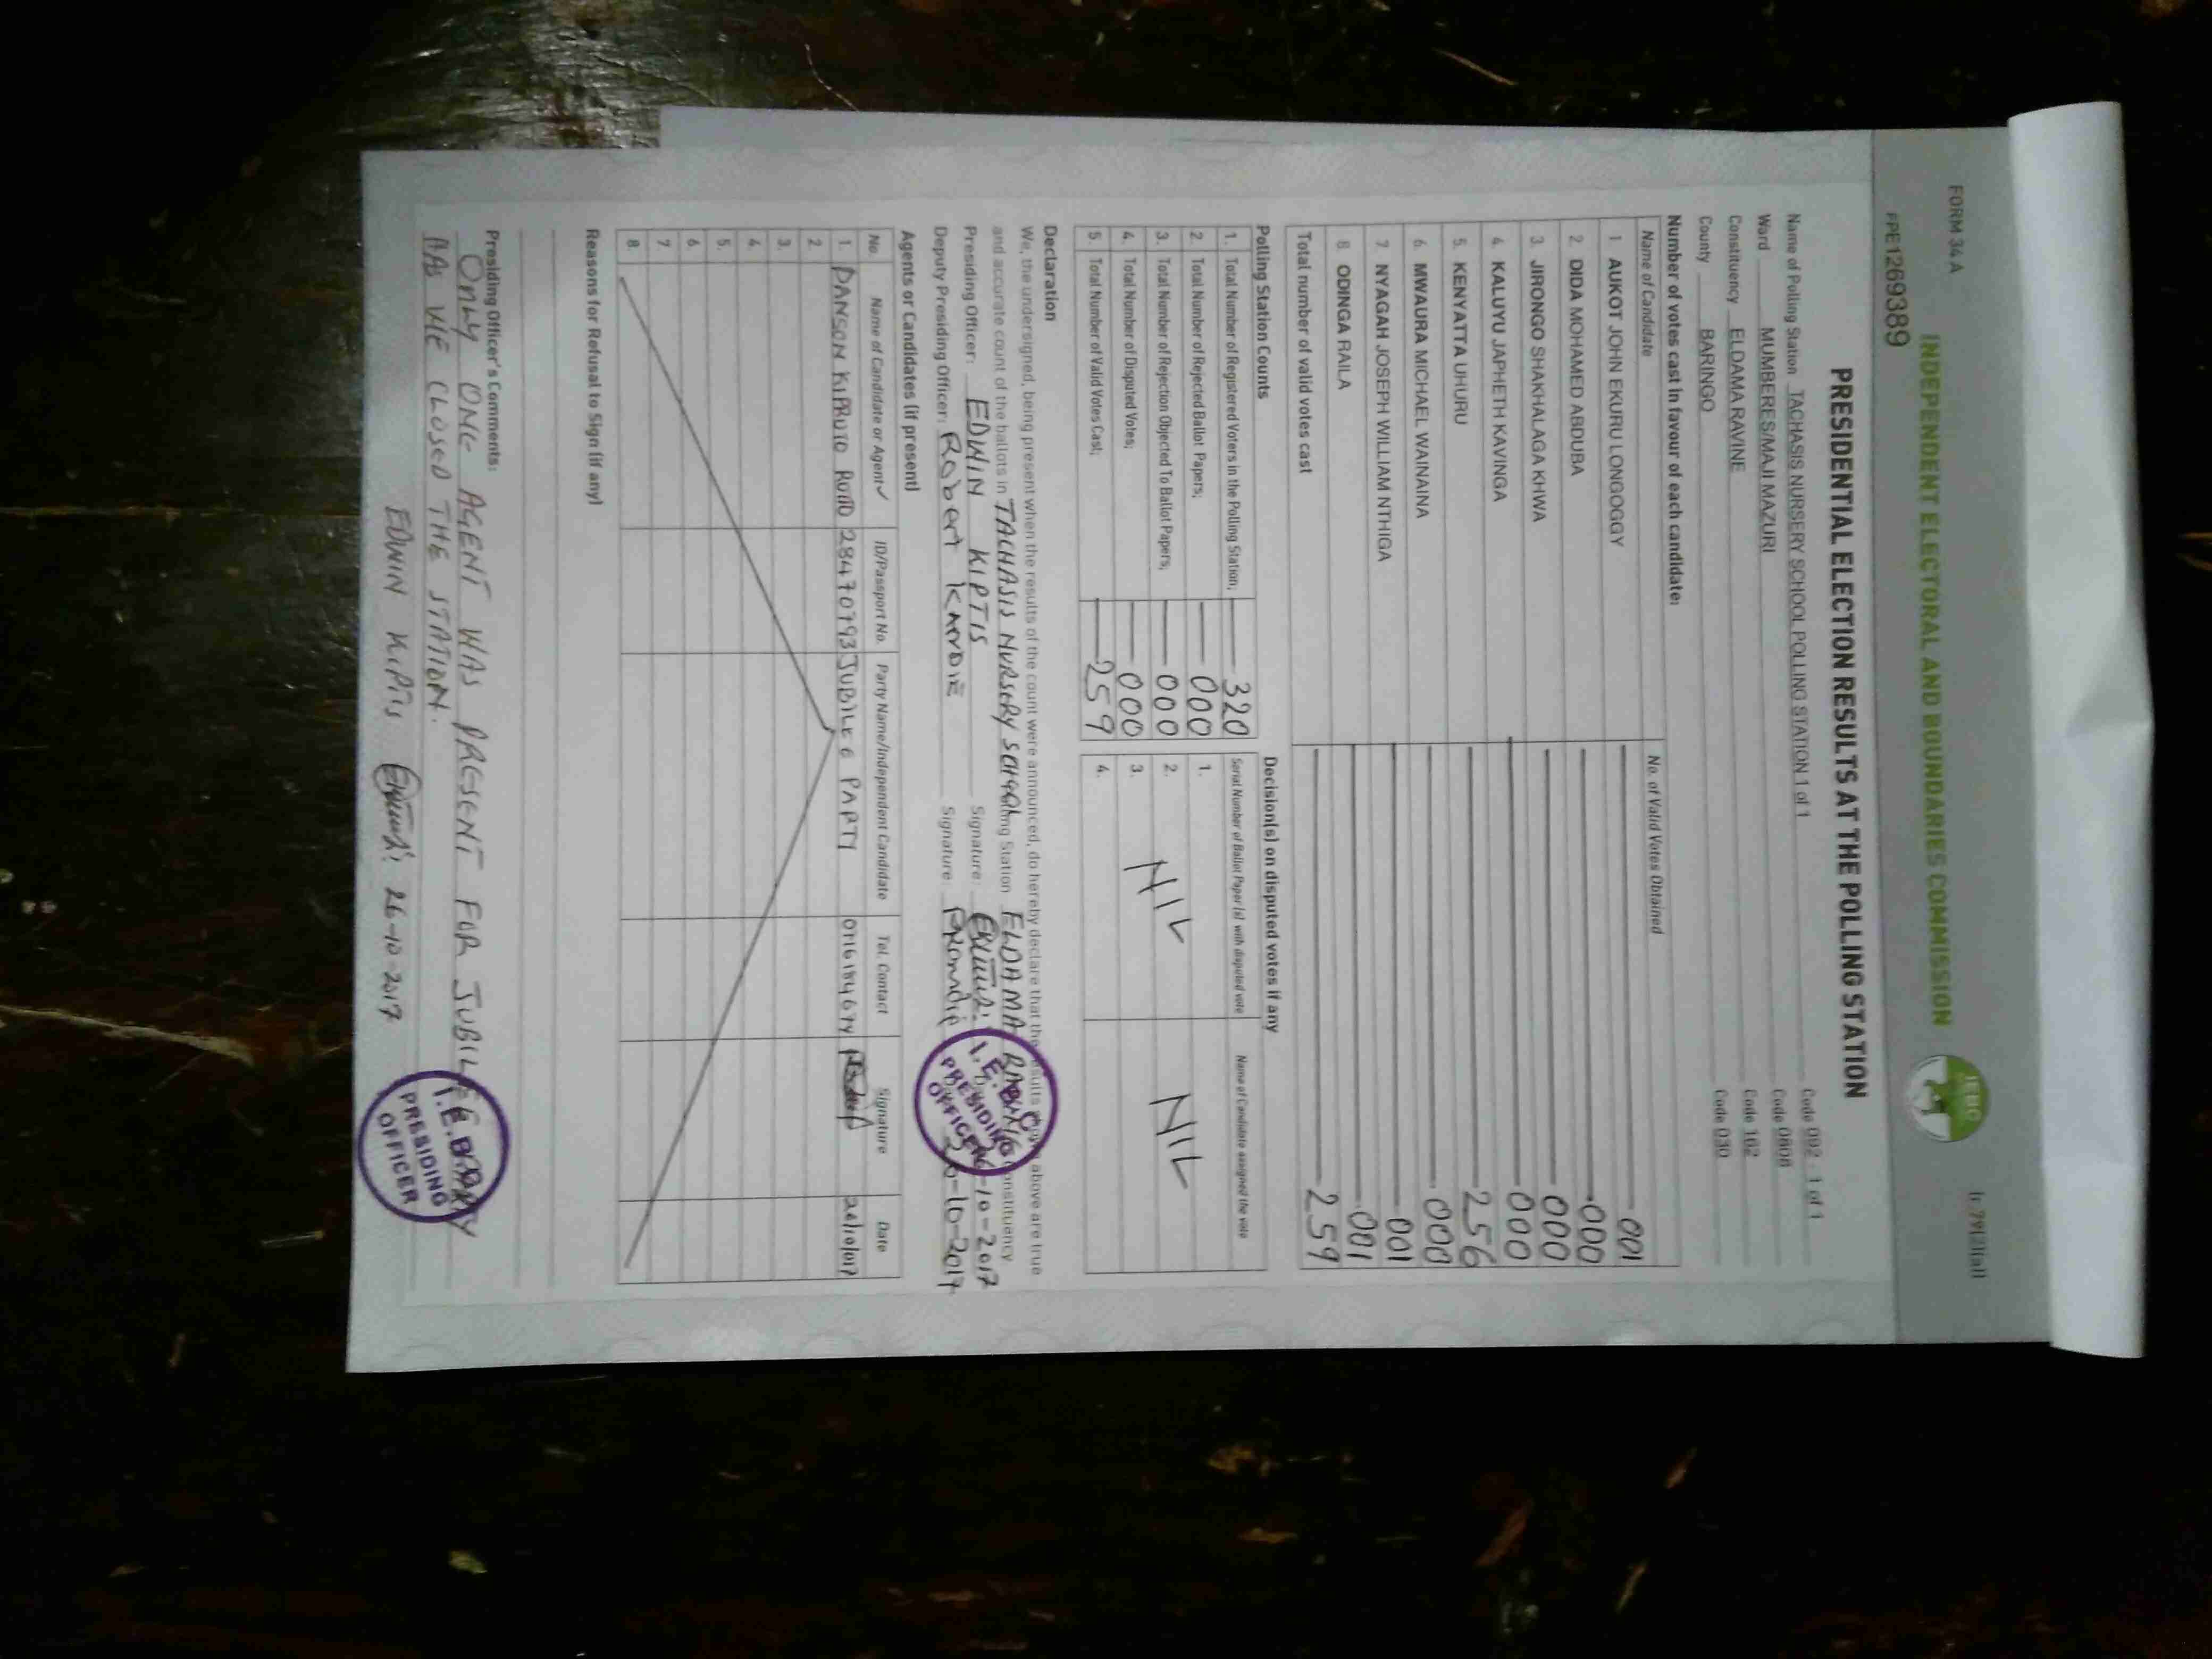 FORM 34 A
INDEPENDENT ELECTORAL AND BOUNDARIES COMMISSION
IEBC
PPE1269389
PRESIDENTIAL ELECTION RESULTS AT THE POLLING STATION
Name of Polling Station TACHASIS NURSERY SCHOOL POLLING STATION 1 of 1 Code 092 - 1 of 1
Ward MUMBERES/MAJI MAZURI Code 0808
Constituency ELDAMA RAVINE Code 162
County BARINGO Code 030
Number of votes cast in favour of each candidate:
Name of Candidate No. of Valid Votes Obtained
1 AUKOT JOHN EKURU LONGOGGY 001
2. DIDA MOHAMED ABDUBA 000
3. JIRONGO SHAKHALAGA KHWA 000
4. KALUYU JAPHETH KAVINGA 000
5. KENYATTA UHURU 256
6. MWAURA MICHAEL WAINAINA 000
7. NYAGAH JOSEPH WILLIAM NTHIGA 001
8. ODINGA RAILA 001
Total number of valid votes cast 259
Polling Station Counts
1. Total Number of Registered Voters in the Polling Station; 320
2. Total Number of Rejected Ballot Papers; 000
3. Total Number of Rejection Objected To Ballot Papers; 000
4. Total Number of Disputed Votes; 000
5. Total Number of Valid Votes Cast; 259
Decision(s) on disputed votes if any
Serial Number of Ballot Paper(s) with disputed vote Name of Candidate assigned the vote
1.
2. NIL NIL
3.
4.
Declaration
We, the undersigned, being present when the results of the count were announced, do hereby declare that the results above are true
and accurate count of the ballots in TACHASIS NURSERY SCHOOL Station ELDAMA RAVINE Constituency
Presiding Officer: EDWIN KIPTIS Signature: 26-10-2017
Deputy Presiding Officer: Robert Signature: 26-10-2017
I.E.B.C
PRESIDING
OFFICER
Agents or Candidates (if present)
No. Name of Candidate or Agent ID/Passport No. Party Name/Independent Candidate Tel. Contact Signature Date
1. DANSON KIPRUTO RUTO 28470793 JUBILEE PARTY
2.
3.
4.
5.
6.
7.
8.
Reasons for Refusal to Sign (if any)
Presiding Officer's Comments:
ONLY ONE AGENT WAS PRESENT FOR JUBILEE PARTY
AS WE CLOSED THE STATION.
EDWIN KIPTIS 26-10-2017
I.E.B.C
PRESIDING
OFFICER